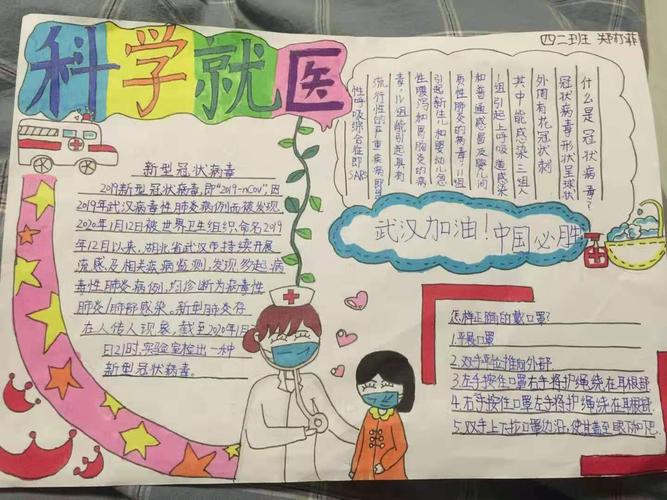 科学就医
四二班
新型冠状病毒
2019新型冠状病毒,即"2019-nCoV",因
2019年武汉病毒性肺炎病例而被发现
2020年1月12日被世界卫生组织命名2019
年12月以来,湖北省武汉市持续开展
流感及相关疾病监测,发现多起病
毒性肺炎病例,均诊断为病毒性
肺炎/肺部感染。新型肺炎存
在人传人现象,截至2020年1月
日21时,实验室检出一种
新型冠状病毒。
什么是冠状病毒?
冠状病毒形状呈球状
外周有花冠状刺
其中能感染三组人
1组引起上呼吸道感染
和普通感冒及婴儿间
易性肺炎的病毒;11组
引起新生儿和婴幼儿急
性腹泻和胃肠炎的病
毒,组能引起具有
流行性的严重疾病即
性呼吸综合征即SARS
武汉加油!中国必胜
怎样正确的戴口罩?
1.平展口罩
2.双手平位推向外部.
3.左手按住口罩右手将护绳绕在耳根部
4.右手按住口罩左手将护绳绕在耳根部.
5.双手上下拉口罩边沿,使其盖至眼下和下巴.